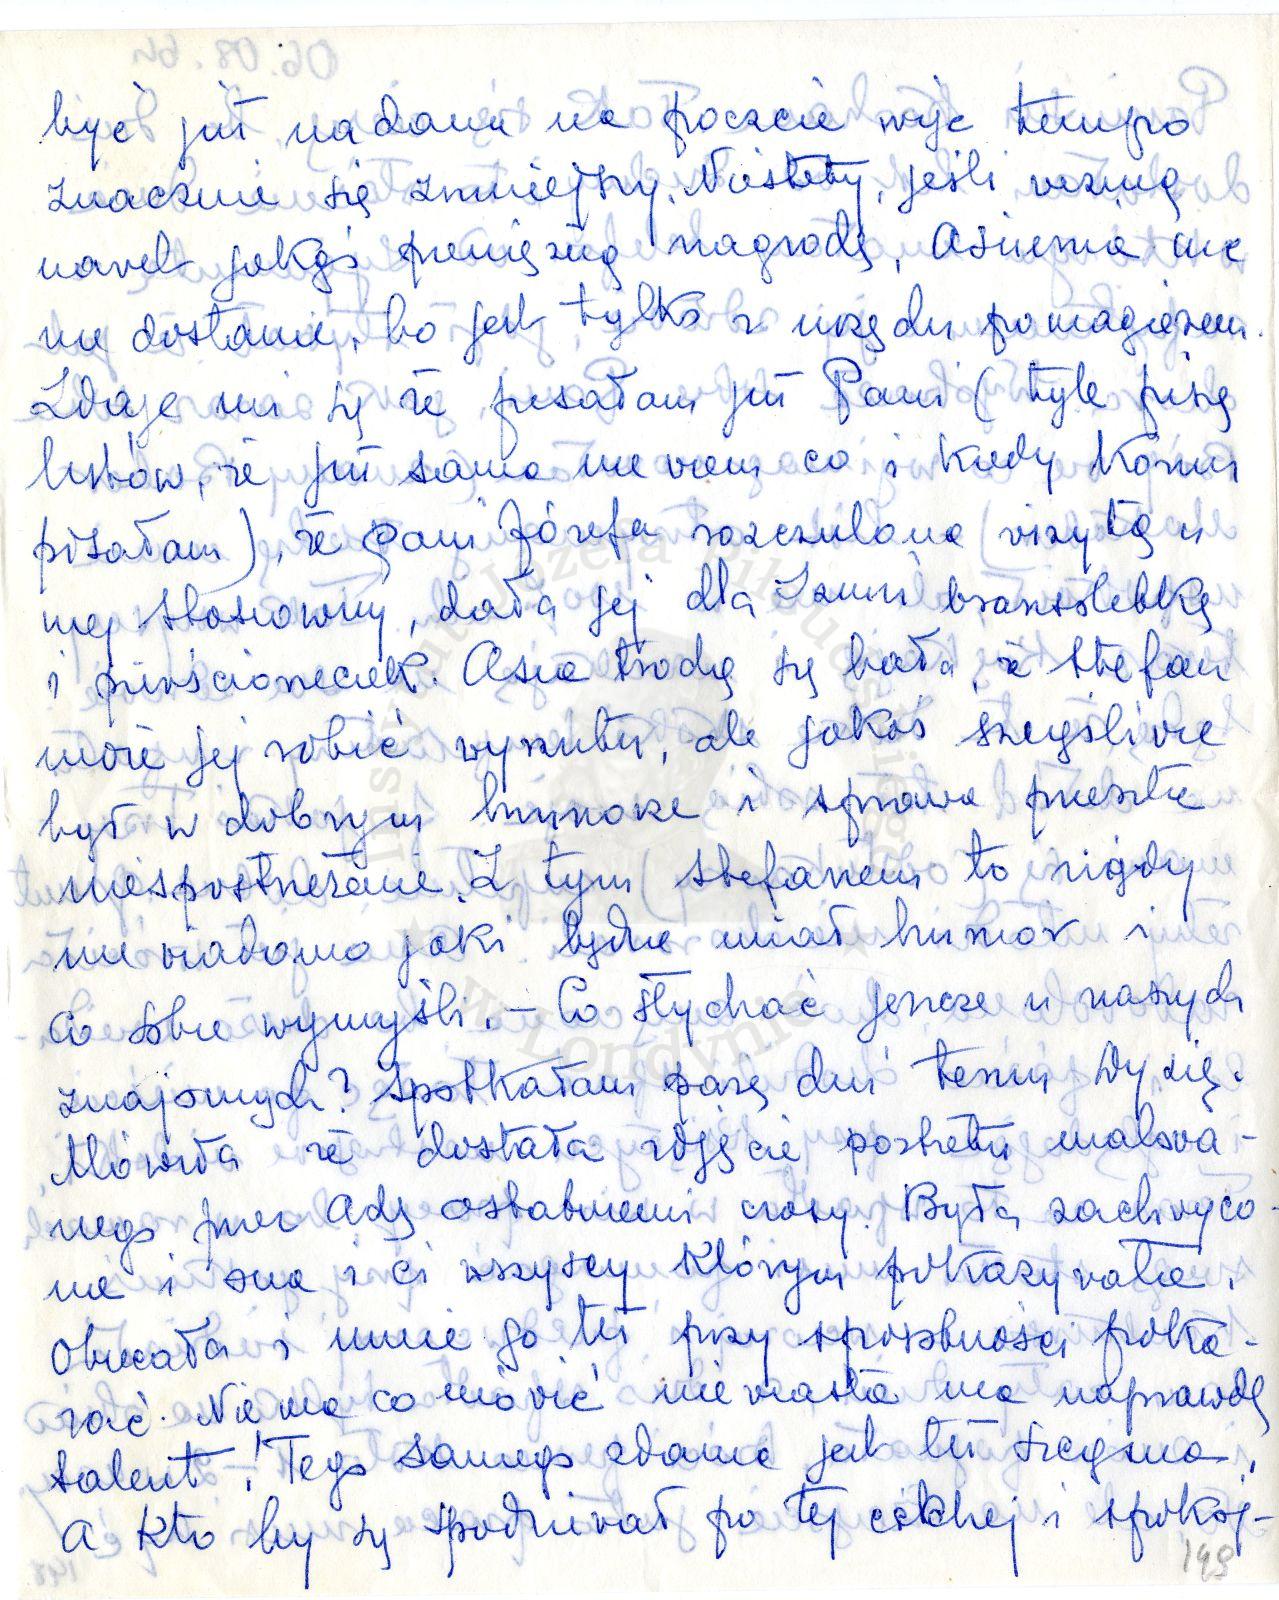 być już nadana na poczcie więc tempo
znacznie się zmniejszy. Niestety, jeśli wezmą
nawet jakąś pieniężną nagrodę, Asiunia nic
nie dostanie, bo jest tylko z urzędu pomagierem.
Zdaje mi się że pisałam już Pani (tyle piszę
listów, że już sama nie wiem co i kiedy komu
pisałam), że Pani Józefa rozczulona wizytą u
niej Stasiowny, dała jej dla Izuni bransoletkę
i pierścioneczek. Asia trochę się bała, że Stefan
może jej robić wyrzuty, ale jakoś szczęśliwie
był w dobrym humorze i sprawa przeszła
niespostrzeżenie. Z tym Stefanem to nigdy
nie wiadomo jaki będzie miał humor i
co sobie wymyśli. – Co słychać jeszcze u naszych
znajomych? Spotkałam parę dni temu Wyzię.
Mówiła że dostała zdjęcie portretu malowa-
nego przez Adę ostatniemi czasy. Była zachwyco-
na i ona i ci wszyscy którym pokazywała.
Obiecała i mnie go też przy sposobności poka-
zać. Nie ma co mówić niewiasta ma naprawdę
talent! Tego samego zdania jest też
A kto by się spodziewał po tej cichej i spokoj-
149
06.08.64
Instytut Józefa Piłsudskiego
w Londynie